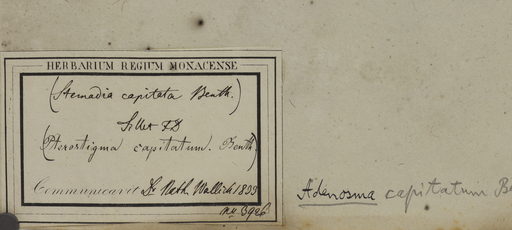 HERBARIUM REGIUM MONACENSE
(Stemadia capitata Benth.)
Sillet F.D
(Pterostigma capitatum. Benth.)
Communicavit Dr. Nath. Wallich 1833
no. 3926
Adenosma capitatum Be